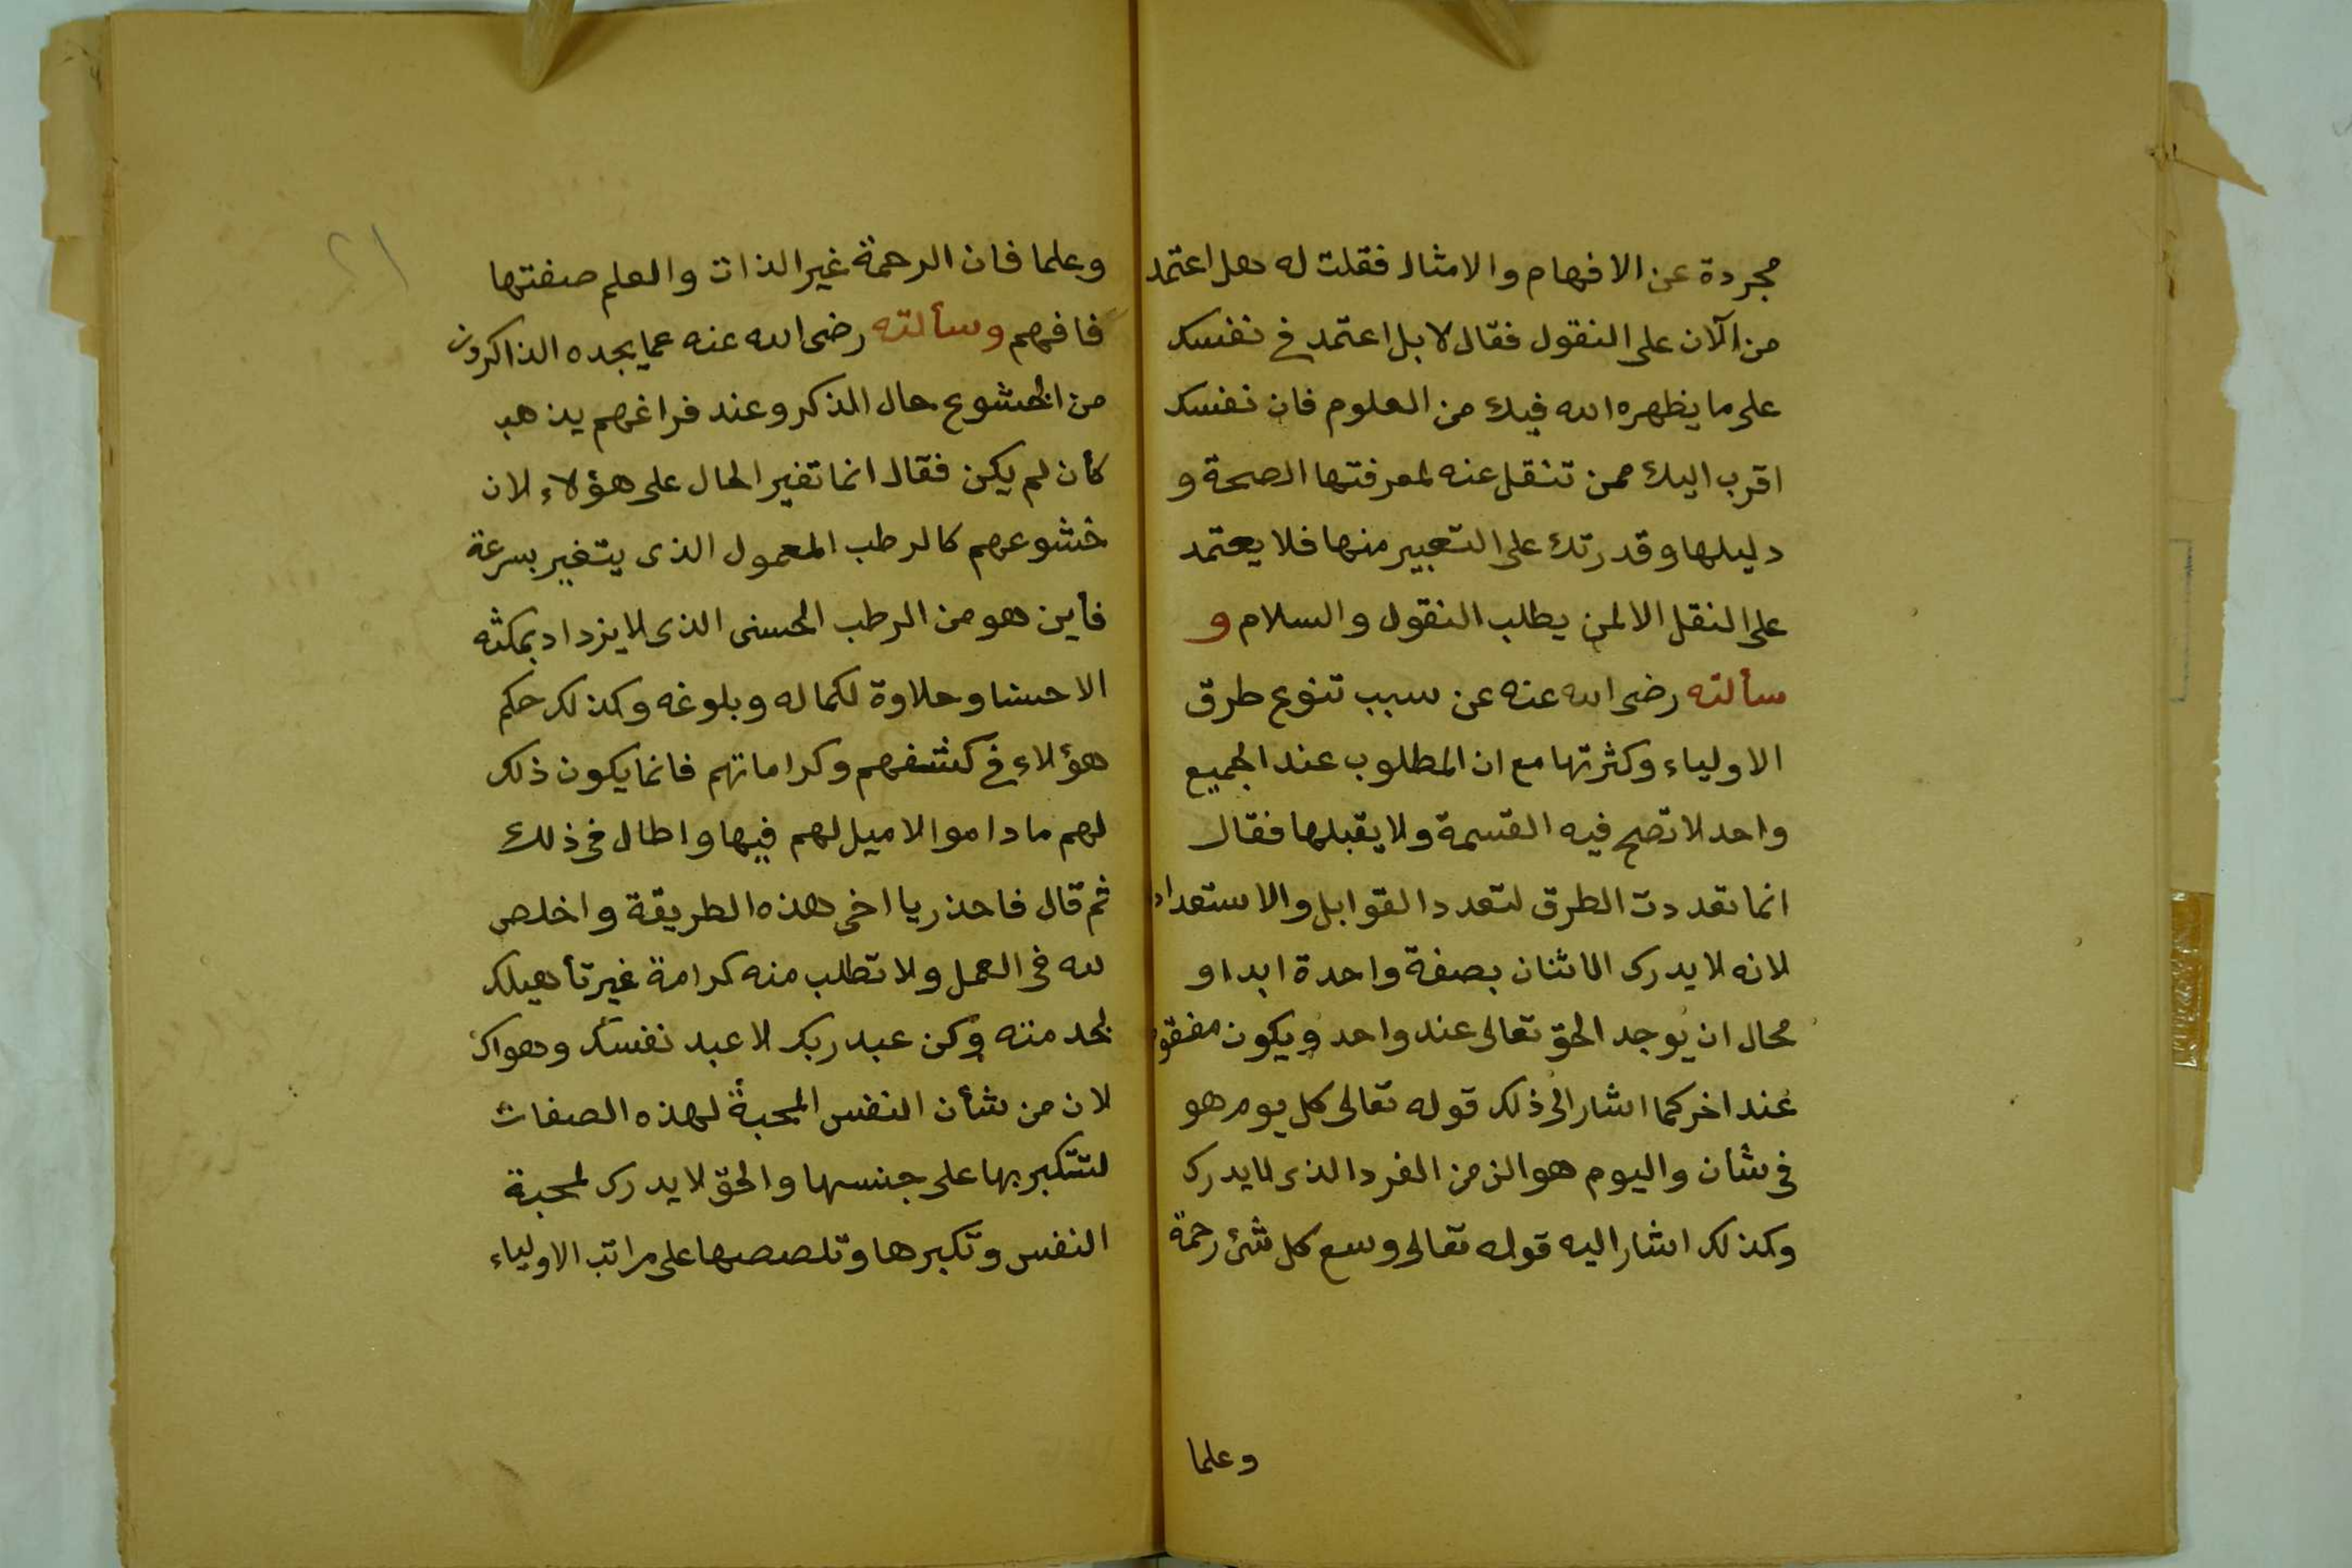 مجردة عن الافهام والامثال فقلت له هل اعتمد
من الآن على النقول فقال لا بل اعتمد فى نفسك
على ما يظهره الله فيك من العلوم فان نفسك
اقرب اليك ممن تنقل عنه لمعرفتها الصحة و
دليلها وقدرتك على التعبير منها فلا يعتمد
على النقل الا لمن يطلب النقول والسلام و
سألته رضى الله عنه عن سبب تنوع طرق
الاولياء وكثرتها مع ان المطلوب عند الجميع
واحد لا تصح فيه القسمة ولا يقبلها فقال
انما تعددت الطرق لتعدد القوابل والاستعداد
لانه لا يدرك اثنان بصفة واحدة ابدا و
محال ان يوجد الحق تعالى عند واحد ويكون مفقو
عند اخر كما اشار الى ذلك قوله تعالى كل يوم هو
فى شأن واليوم هو الزمن الفرد الذى لا يدرك
وكذلك اشار اليه قوله تعالى وسع كل شئ رحمة
وعلما
وعلما فان الرحمة غير الذات والعلم صفتها
فافهم وسألته رضى الله عنه عما يجده الذاكرون
من الخشوع حال الذكر وعند فراغهم يذهب
كأن لم يكن فقال انما تغير الحال على هؤلاء لان
خشوعهم كالرطب المعمول الذى يتغير بسرعة
فأين هو من الرطب الحسنى الذى لا يزداد بمكثه
الا حسنا وحلاوة لكماله وبلوغه وكذلك حكم
هؤلاء فى كشفهم وكراماتهم فانما يكون ذلك
لهم ما داموا لا ميل لهم فيها واطال فى ذلك
ثم قال فاحذر يا اخى هذه الطريقة واخلص
لله فى العمل ولا تطلب منه كرامة غير تأهيلك
لخدمته وكن عبد ربك لا عبد نفسك وهواك
لان من شأن النفس المحبة لهذه الصفات
لتتكبر بها على جنسها والحق لا يدرك لمحبة
النفس وتكبرها وتلصصها على مراتب الاولياء